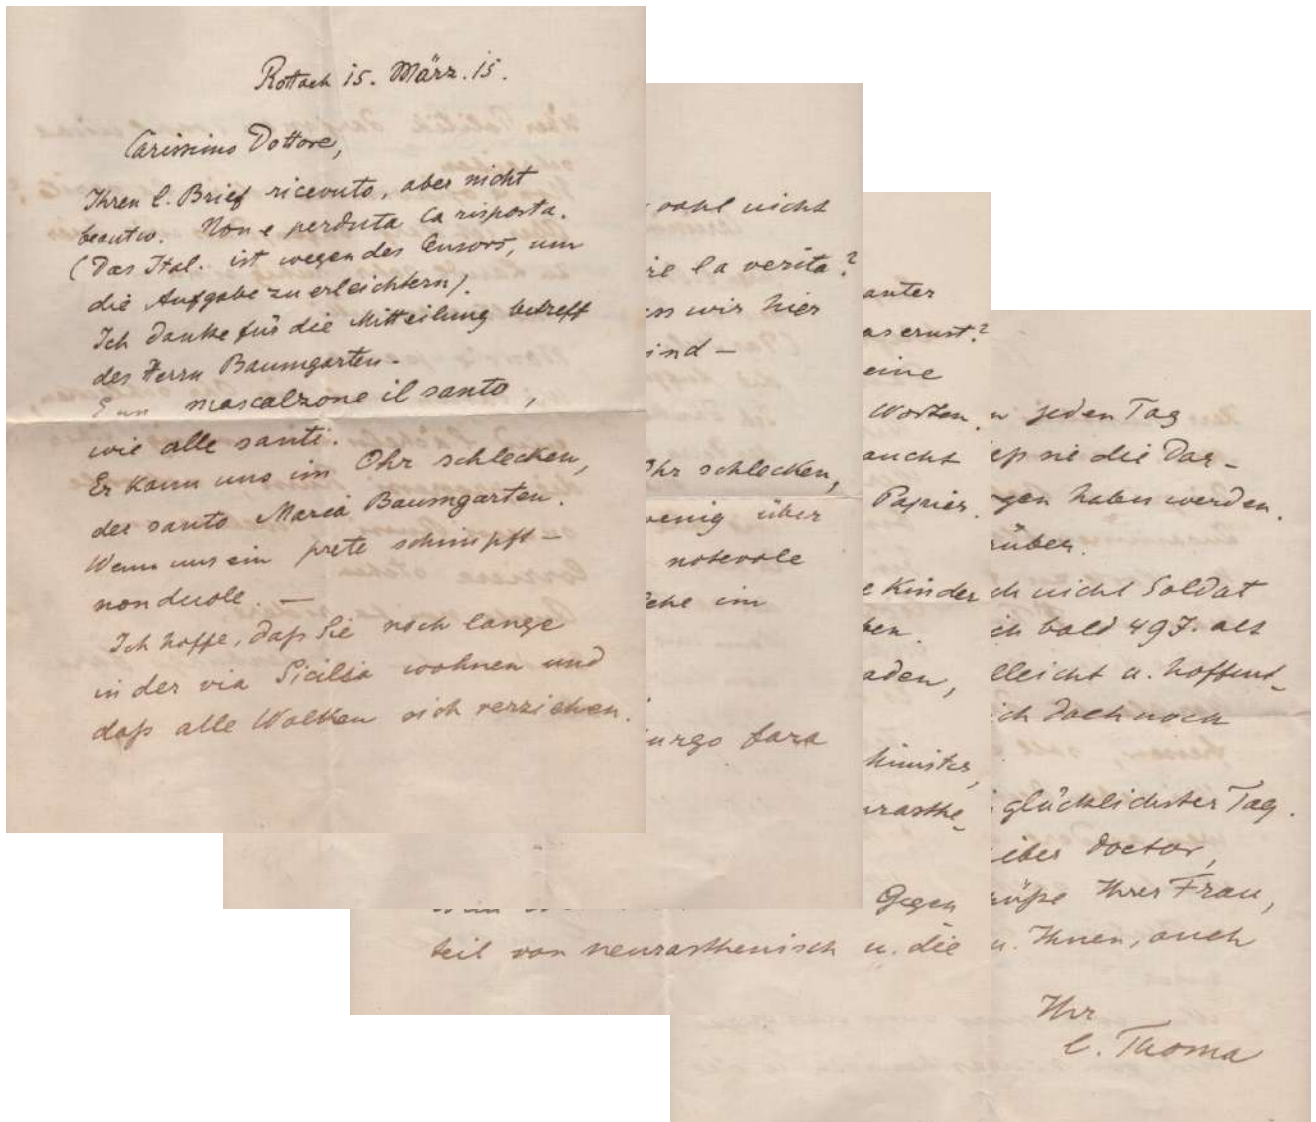 Rottach 15. März. 15.
Carissimo Dottore,
Ihren l. Brief ricevuto, aber nicht
beantw. Non e perduta la risposta.
(Das Ital. ist wegen des Censors, um
die Aufgabe zu erleichtern).
Ich danke für die Mitteilung betreff
des Herrn Baumgarten.
E un mascalzone il santo,
wie alle santi.
Er kann uns im Ohr schlecken,
der santo Maria Baumgarten.
Wenn uns ein prete schimpft –
non duole. —
Ich hoffe, daß Sie noch lange
in der via Sicilia wohnen und
daß alle Wolken sich verziehen.
wohl nicht
re la verita?
ss wir hier
ind –
Ohr schlecken,
wenig über
notevole
ehe im
urgo fara
anter
as ernst?
eine
Worten.
aucht
Papier.
e Kinder
ben.
aden,
Minister,
urasthe-
Gegen
teil von neurasthenisch u. die
n jeden Tag
eß sie die Dar-
gen haben werden.
rüber.
ch nicht Soldat
ich bald 49J. alt
lleicht u. hoffent-
ich doch noch
glücklichster Tag.
ieber Doctor,
rüße Ihrer Frau,
u. Ihnen, auch
Ihr
L. Thoma